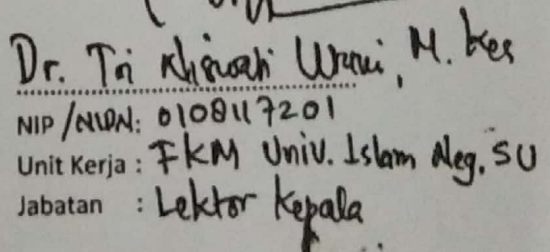 Dr. Tri Niswati Utami, M. Kes
NIP/NIDN: 0108117201
Unit Kerja : FKM Univ. Islam Neg. SU
Jabatan : Lektor Kepala